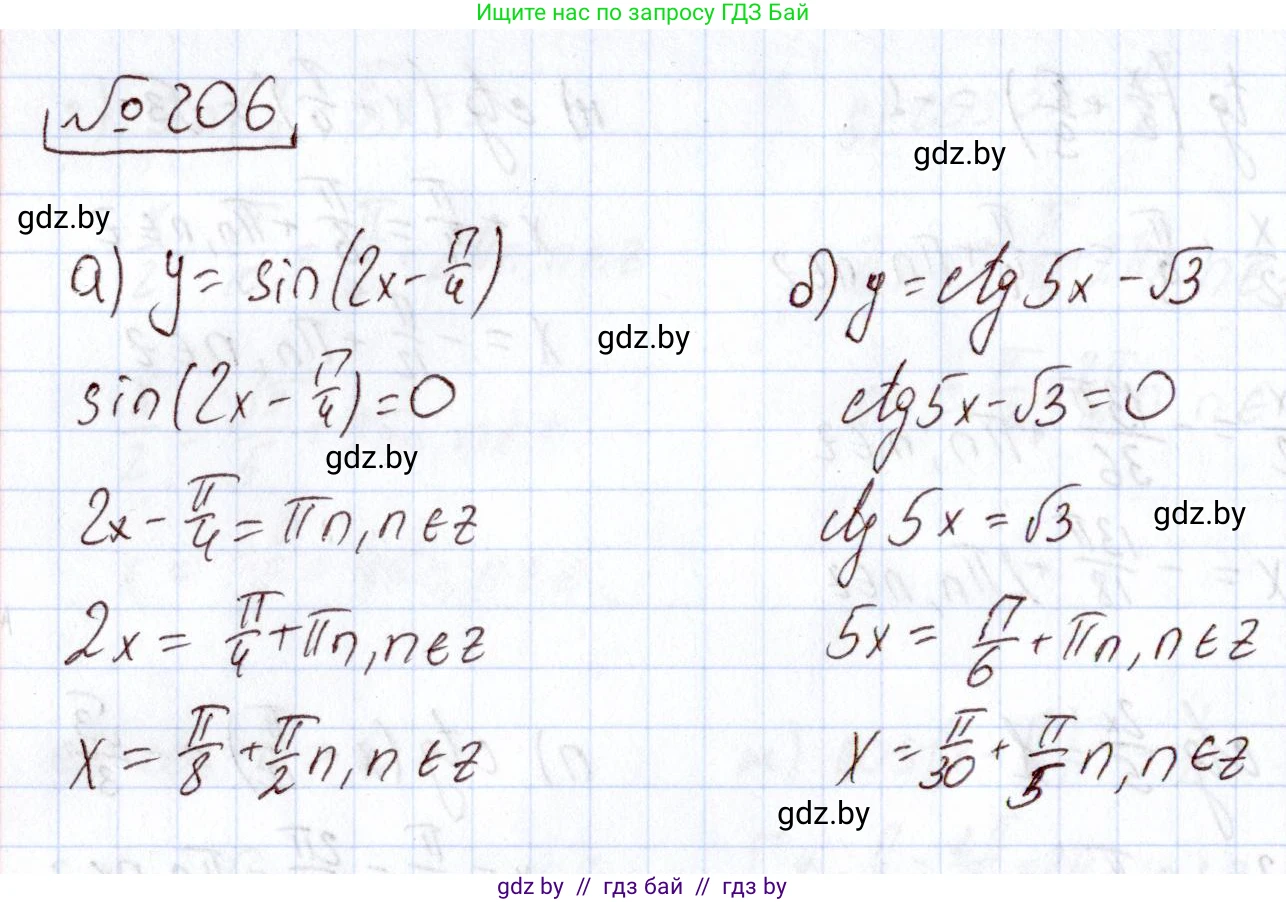 Ищите нас по запросу ГДЗ Бай
№206
gdz.by
gdz.by
а) y = sin(2x - π/4)
sin(2x - π/4) = 0
2x - π/4 = πn, n ∈ z
2x = π/4 + πn, n ∈ z
x = π/8 + π/2 n, n ∈ z
gdz.by
gdz.by
б) y = ctg 5x - √3
ctg 5x - √3 = 0
ctg 5x = √3
5x = π/6 + πn, n ∈ z
x = π/30 + π/5 n, n ∈ z
gdz.by
gdz.by
gdz by // гдз бай // гдз by